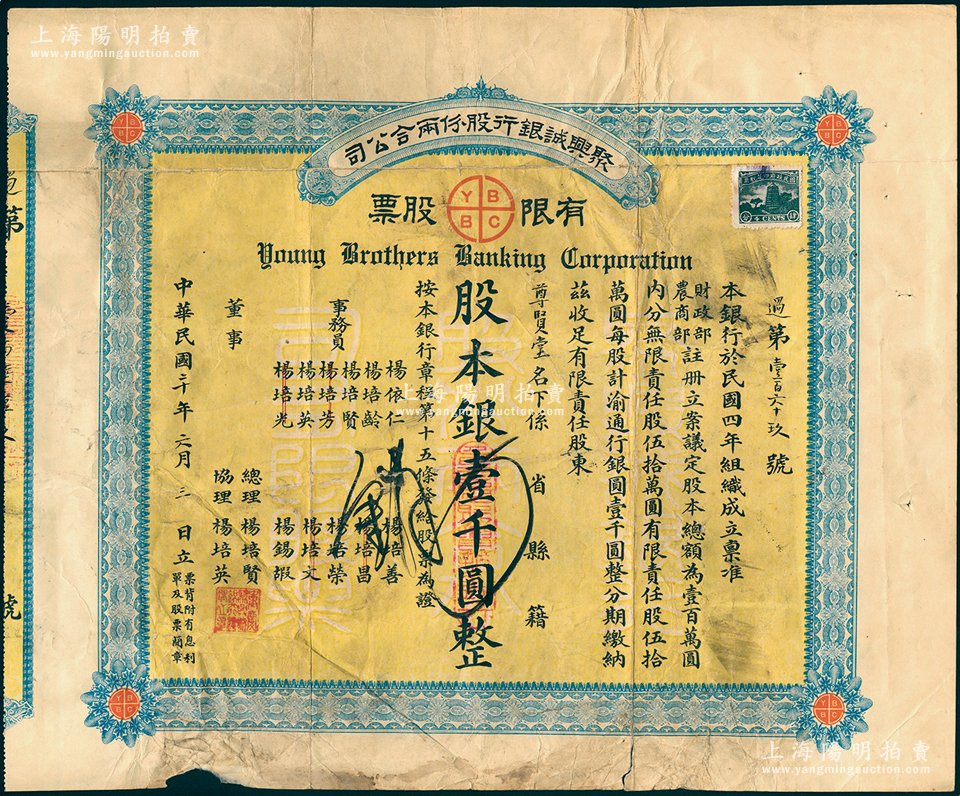 上海陽明拍賣
www.yangmingauction.com
聚興誠銀行股份兩合公司
有限股票
Y B
B C
4 CENTS
Young Brothers Banking Corporation
過第壹百六十玖號
本銀行於民國四年組織成立稟准
財政部
農商部註册立案議定股本總額為壹百萬圓
內分無限責任股伍拾萬圓有限責任股伍拾
萬圓每股計渝通行銀圓壹千圓整分期繳納
茲收足有限責任股東
尊賢堂名下係 省 縣 籍
股本銀壹千圓整
按本銀行章程第十五條發給股票為證
事務員
楊依仁
楊培齡
楊培賢
楊培芳
楊培英
楊培光
楊培善
楊培昌
楊培榮
楊培文
楊錫嘏
董事
總理 楊培賢
協理 楊培英
中華民國二十年元月三日立
票背附有息利
單及股票簡章
第
號
上海陽明拍賣
www.yangmingauction.com
上海陽明拍賣
www.yangmingauction.com